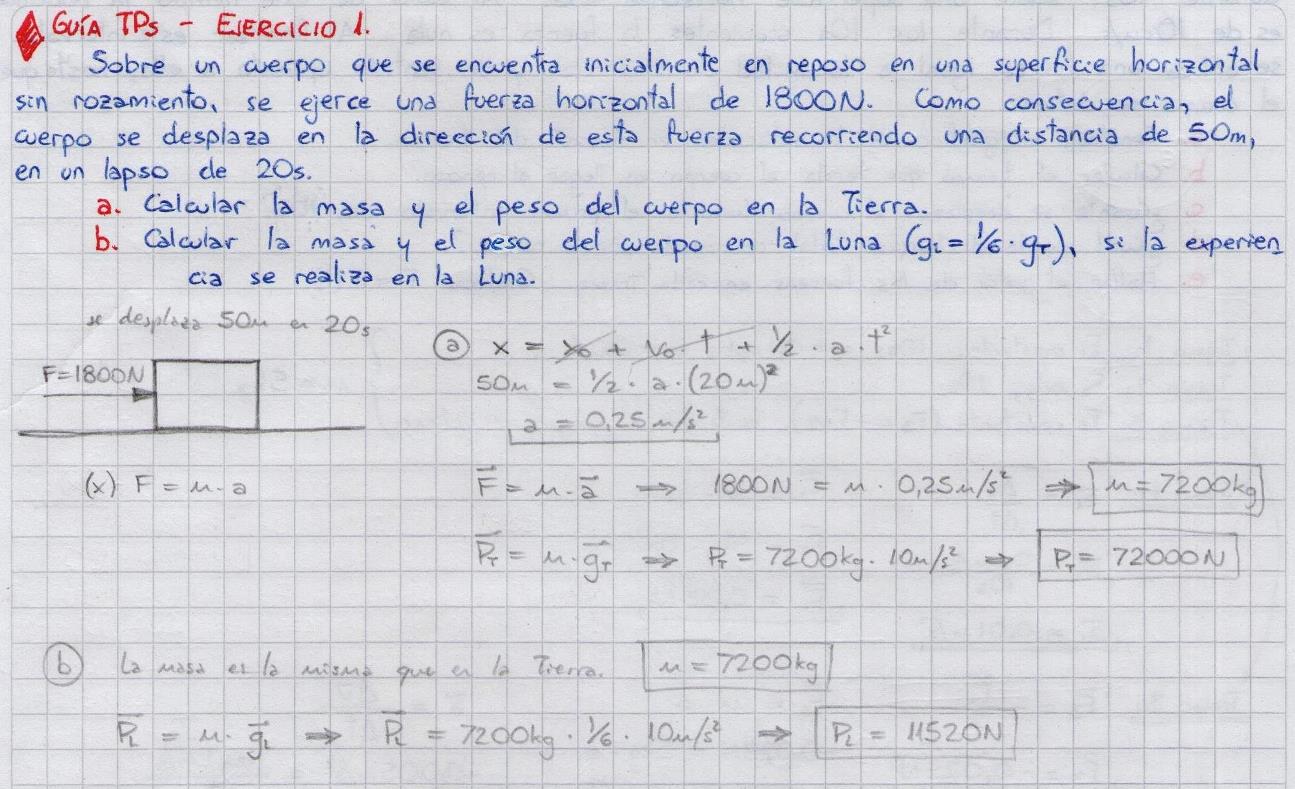 GUÍA TPs - EJERCICIO 1.
Sobre un cuerpo que se encuentra inicialmente en reposo en una superficie horizontal
sin rozamiento, se ejerce una fuerza horizontal de 1800N. Como consecuencia, el
cuerpo se desplaza en la dirección de esta fuerza recorriendo una distancia de 50m,
en un lapso de 20s.
a. Calcular la masa y el peso del cuerpo en la Tierra.
b. Calcular la masa y el peso del cuerpo en la Luna (gL = 1/6 · gT), si la experien
cia se realiza en la Luna.
se desplaza 50m en 20s
F=1800N
(x) F = m · a
(a) x = x₀ + v₀ · t + 1/2 · a · t²
50m = 1/2 · a · (20m)²
a = 0,25 m/s²
F⃗ = m · a⃗ → 1800N = m · 0,25m/s² ⇒ m = 7200kg
P⃗T = m · g⃗T ⇒ PT = 7200kg · 10m/s² ⇒ PT = 72000N
(b) La masa es la misma que en la Tierra. m = 7200kg
P⃗L = m · g⃗L ⇒ P⃗L = 7200kg · 1/6 · 10m/s² ⇒ PL = 11520N